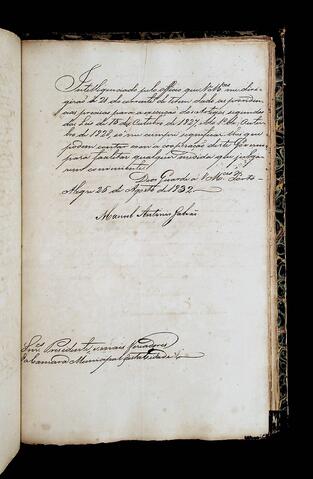 Intelligenciado pelo officio que V.Mces me diri-
girão a 21 do corrente de terem dado as providen-
cias precisas para a execução
das Leis de 15 de Outubro de 1827, e 1.º de Outu-
bro de 1828, só me cumpre significar-lhes que
podem contar com a cooperação deste Governo
para facilitar qualquer medida que julga-
rem conveniente.
Deos Guarde a V.Mces Porto
Alegre 25 de Agosto de 1832.
Manuel Antonio Galvão
Snrs. Presidente, e mais Vereadores
da Camara Municipal desta Cidade